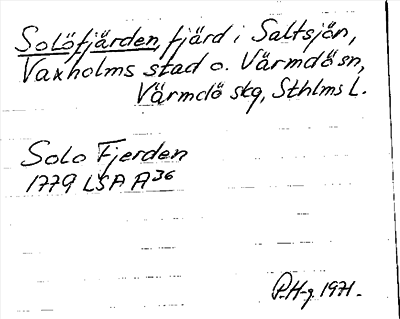 Solöfjärden, fjärd i Saltsjön,
Vaxholms stad o. Värmdö sn,
Värmdö skg, Sthlms L.
Solo Fjerden
1779 LSA A36
P.H-g. 1971.